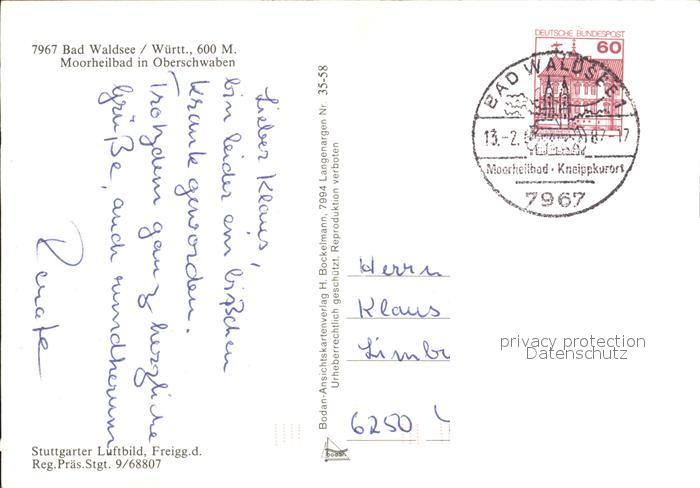 7967 Bad Waldsee / Württ., 600 M.
Moorheilbad in Oberschwaben
Lieber Klaus,
bin leider ein bißchen
krank geworden.
Trotzdem ganz herzliche
Grüße, auch rundherum
Renate
Stuttgarter Luftbild, Freigg.d.
Reg.Präs.Stgt. 9/68807
Bodan-Ansichtskartenverlag H. Bockelmann, 7994 Langenargen Nr. 35-58
Urheberrechtlich geschützt. Reproduktion verboten
DEUTSCHE BUNDESPOST
60
BAD WALDSEE 1
13.-2. 87-17
Moorheilbad · Kneippkurort
7967
Herrn
Klaus
Limb
6250
privacy protection
Datenschutz